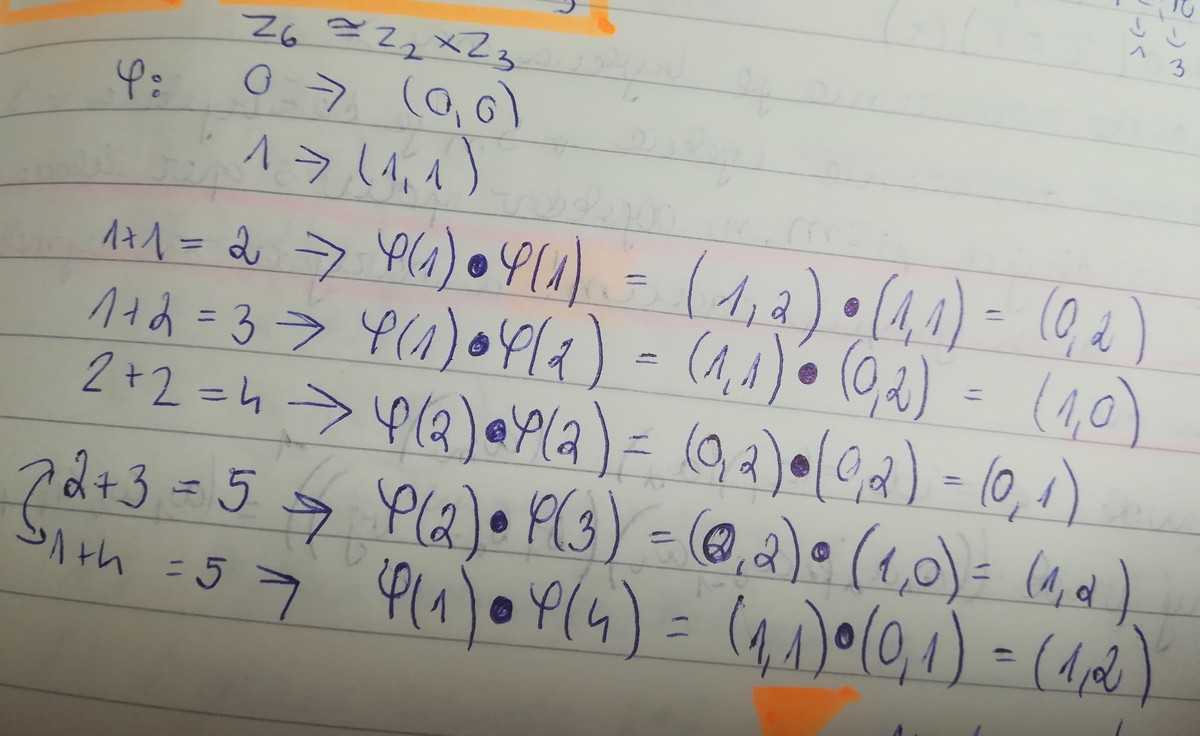 Z₆ ≅ Z₂ × Z₃
φ: 0 → (0,0)
1 → (1,1)
1+1 = 2 → φ(1)•φ(1) = (1,2)•(1,1) = (0,2)
1+2 = 3 → φ(1)•φ(2) = (1,1)•(0,2) = (1,0)
2+2 = 4 → φ(2)•φ(2) = (0,2)•(0,2) = (0,1)
2+3 = 5 → φ(2)•φ(3) = (0,2)•(1,0) = (1,2)
1+4 = 5 → φ(1)•φ(4) = (1,1)•(0,1) = (1,2)